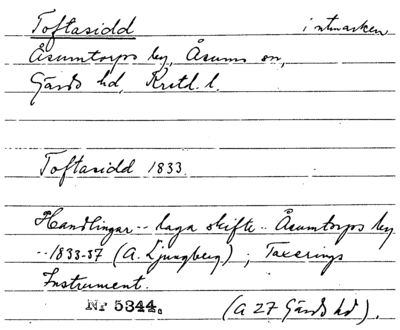 Toftasidd i utmarken
Åsumtorps by, Åsums sn,
Gärds hd, Kristd. l.
Toftasidd 1833.
Handlingar -- laga skifte -- Åsumtorps by
-- 1833-37 (A. Ljungberg); Taxerings
Instrument.
Nr 5344.
(A 27 Gärds hd).